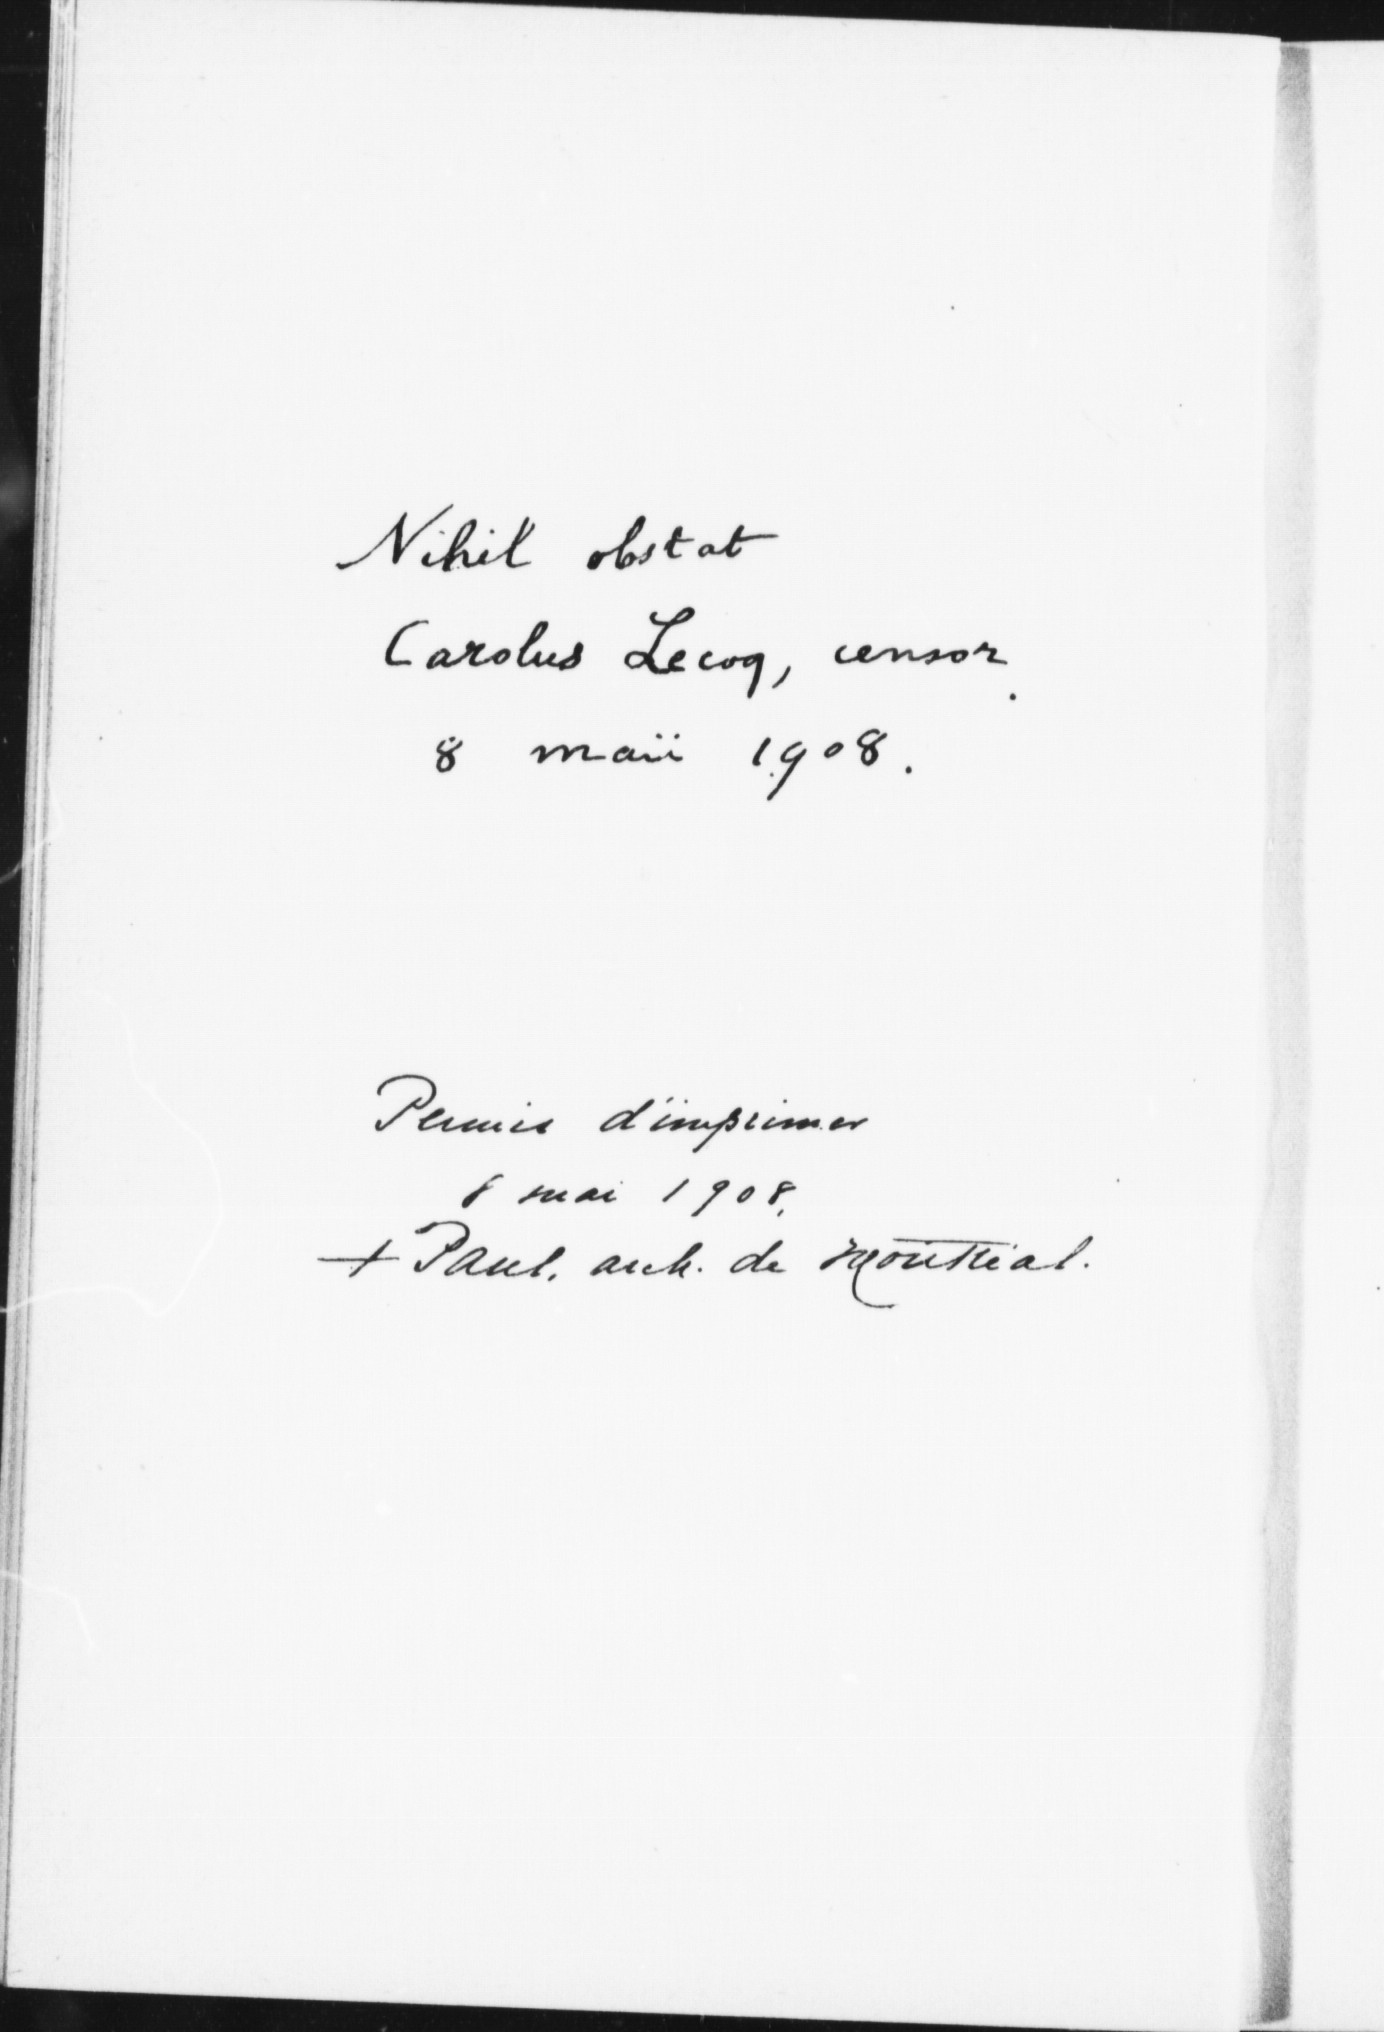 Nihil obstat
Carolus Lecoq, censor.
8 maii 1908.
Permis d'imprimer
8 mai 1908.
+ Paul, arch. de Montréal.